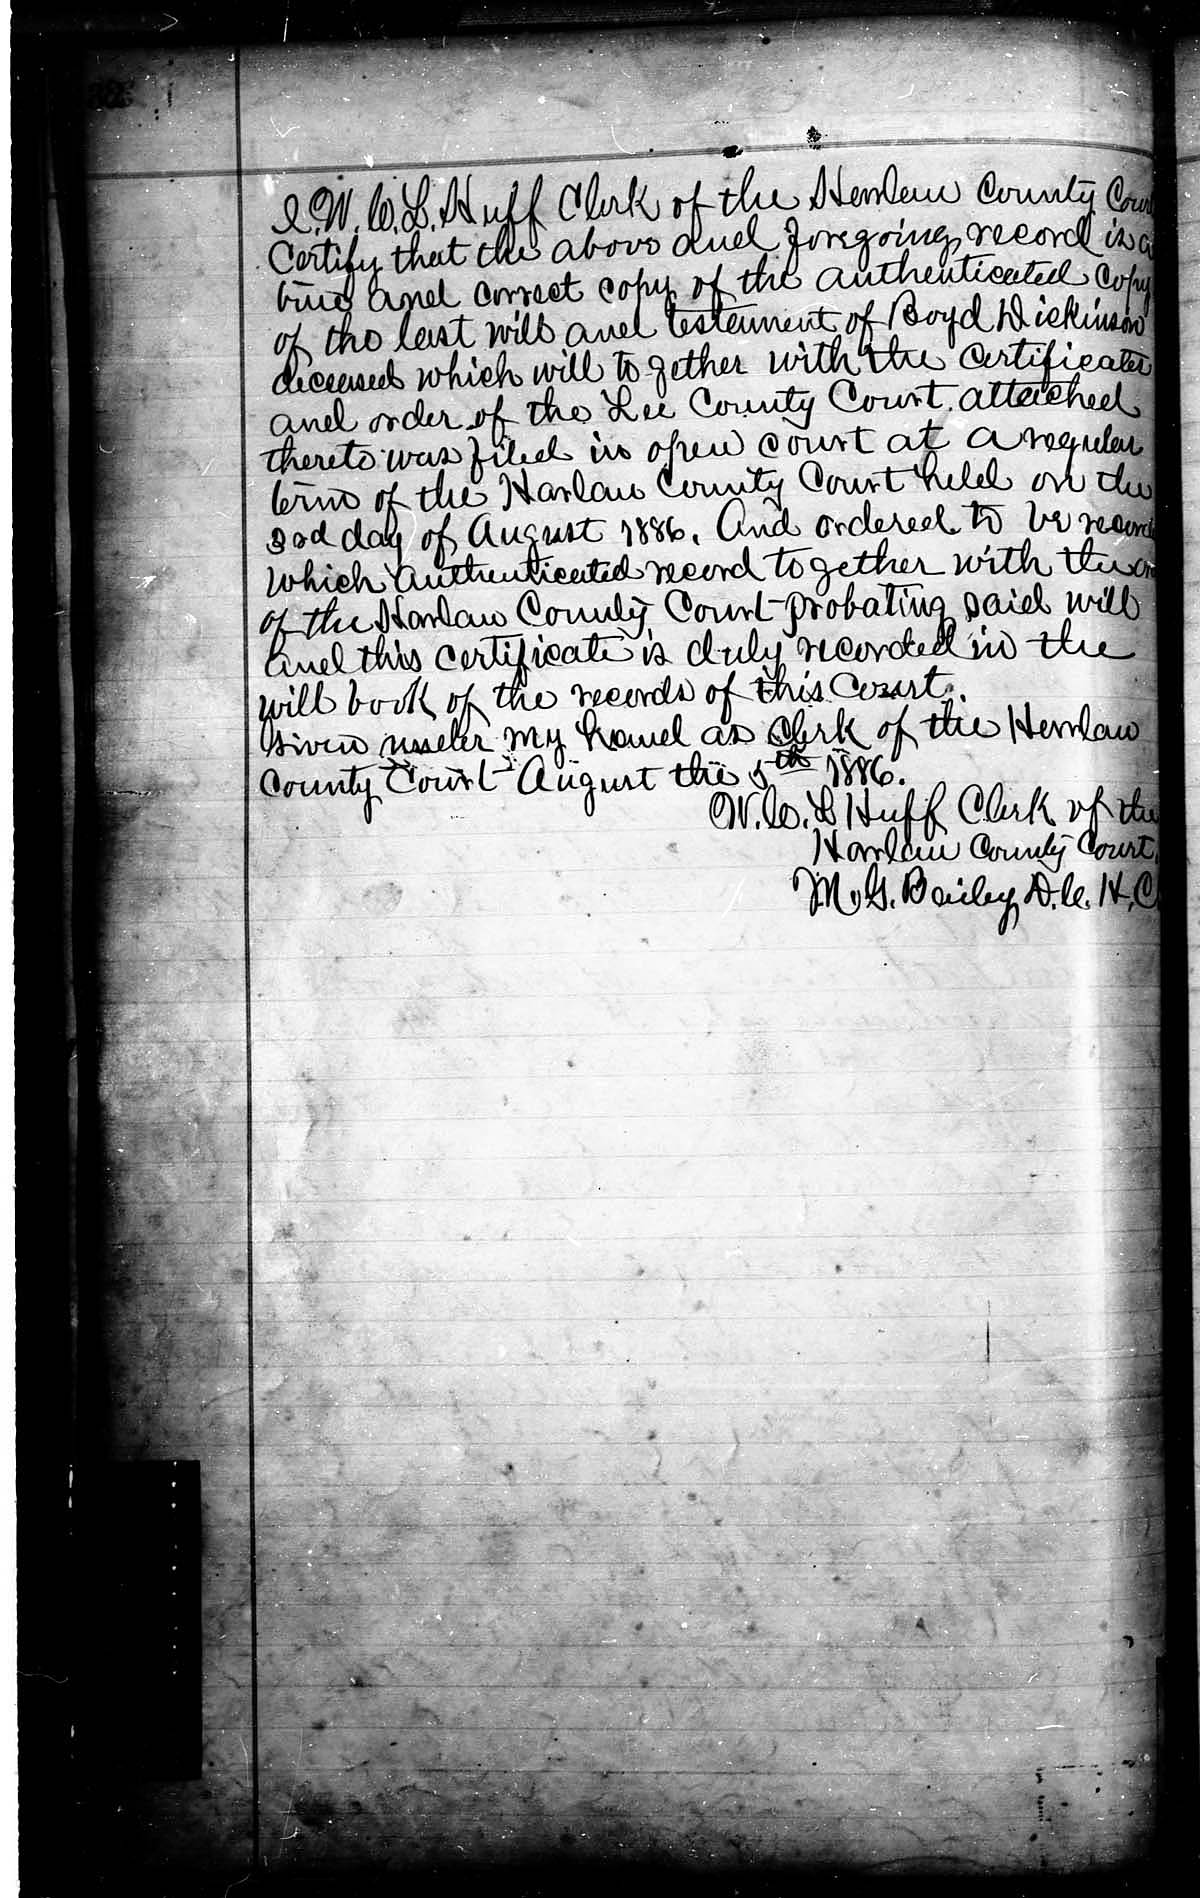 I. W. C. L. Huff Clerk of the Harlan County Cour
Certify that the above and foregoing record is a
true and correct copy of the authenticated copy
of the last will and testament of Boyd Dickinson
deceased which will to gether with the certificates
and order of the Lee County Court attached
thereto was filed in open court at a regular
term of the Harlan County Court held on the
3rd day of August 1886. And ordered to be record
which authenticated record together with the or
of the Harlan County Court probating said will
and this certificate is duly recorded in the
will book of the records of this Court.
Given under my hand as Clerk of the Harlan
County Court August the 5th 1886.
W. C. L Huff Clerk of the
Harlan County Court.
M. G. Bailey D. C. H. C